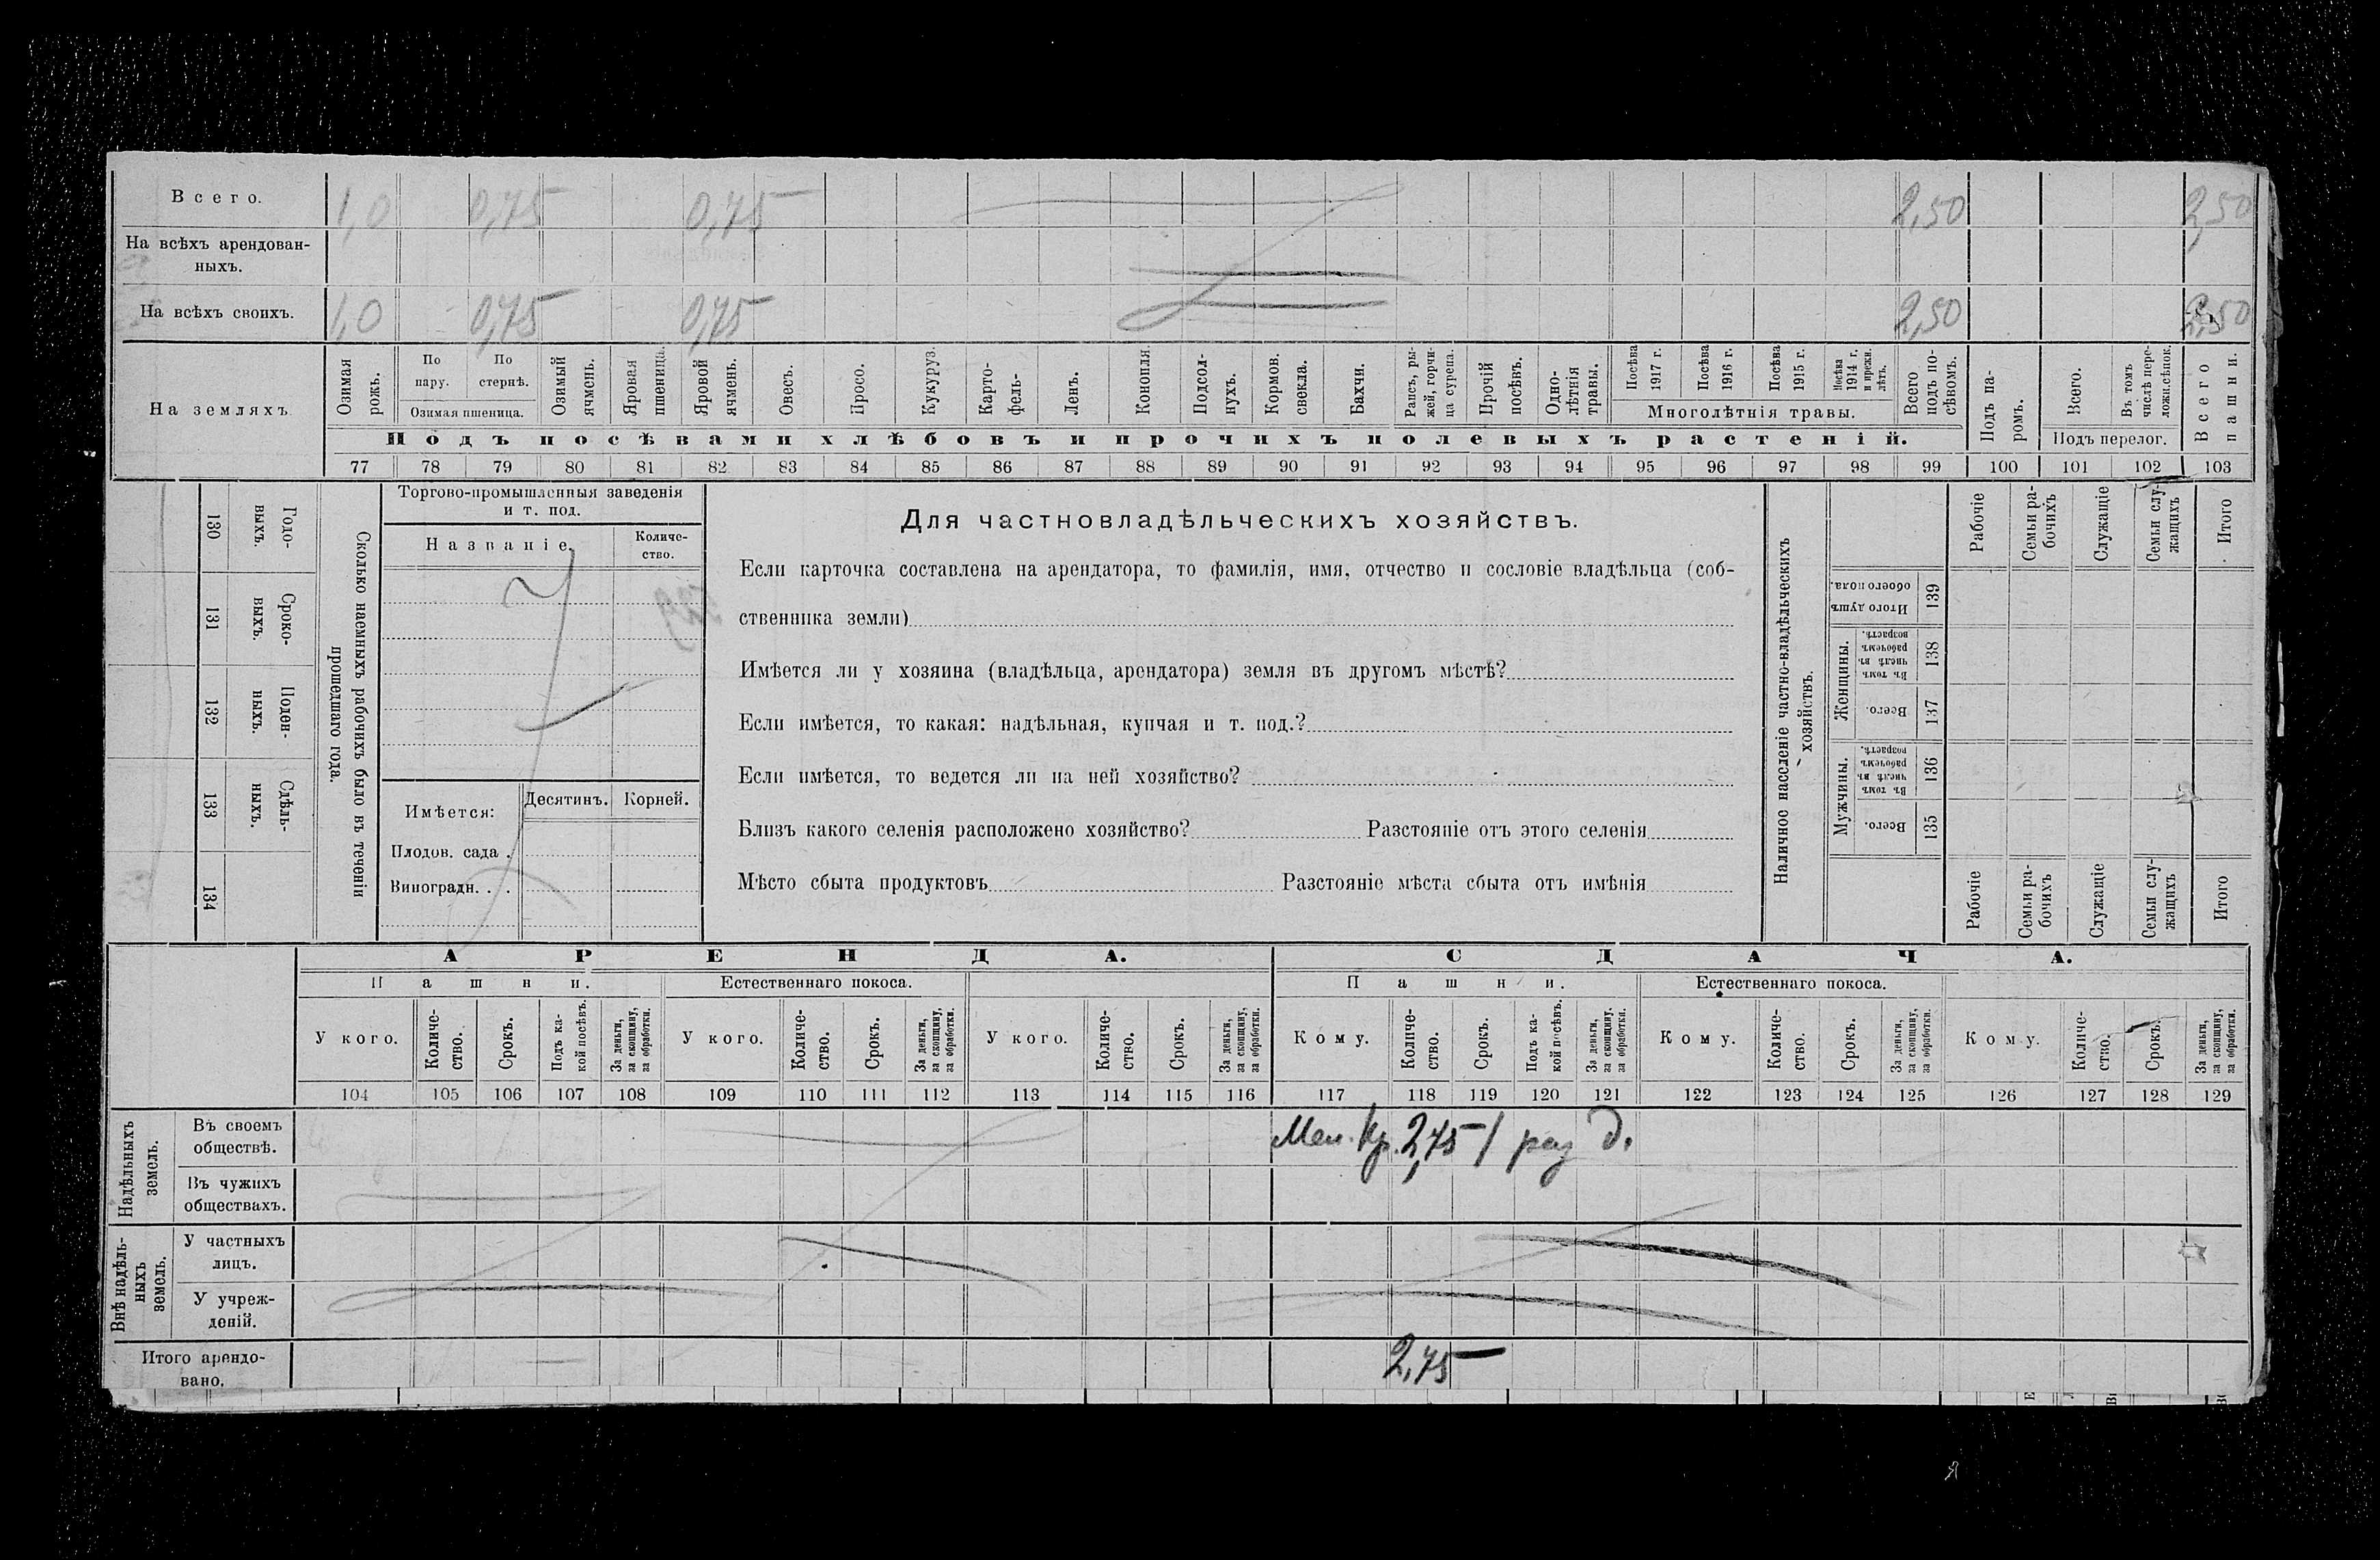 Всего. 1,0 0,75 0,75 2,50 2,50
На всѣхъ арендован-
ныхъ.
На всѣхъ своихъ. 1,0 0,75 0,75 2,50 2,50
На земляхъ
Озимая рожь.
По пару.
По стернѣ.
Озимая пшеница.
Озимый ячмень.
Яровая пшеница.
Яровой ячмень.
Овесъ.
Просо.
Кукуруз.
Карто-
фель-
Ленъ.
Конопля.
Подсол-
нухъ.
Кормов.
свекла.
Бахчи.
Рапсъ, ры-
жей, горчи-
ца сурепа.
Прочій
посѣвъ.
Одно-
лѣтнія
травы.
Посѣва
1917 г.
Посѣва
1916 г.
Посѣва
1915 г.
Посѣва
1914 г.
и прежн.
лѣтъ.
Многолѣтнія травы.
Всего
подъ по-
сѣвомъ.
Подъ па-
ромъ.
Всего.
Въ томъ
числѣ пере-
ложн.сѣнок.
Подъ перелог.
Всего
пашни.
Подъ посѣвами хлѣбовъ и прочихъ полевыхъ растеній.
77 78 79 80 81 82 83 84 85 86 87 88 89 90 91 92 93 94 95 96 97 98 99 100 101 102 103
130 Годо-
выхъ.
131 Сроко-
выхъ.
132 Поден-
ныхъ.
133 Сдѣль-
ныхъ.
134
Сколько наемныхъ рабочихъ было въ теченіи
прошедшаго года.
Торгово-промышленныя заведенія
и т. под.
Названіе.
Количе-
ство.
Имѣется:
Десятинъ. Корней.
Плодов. сада .
Виноградн. . .
Для частновладѣльческихъ хозяйствъ.
Если карточка составлена на арендатора, то фамилія, имя, отчество и сословіе владѣльца (соб-
ственника земли)
Имѣется ли у хозяина (владѣльца, арендатора) земля въ другомъ мѣстѣ?
Если имѣется, то какая: надѣльная, купчая и т. под.?
Если имѣется, то ведется ли на ней хозяйство?
Близъ какого селенія расположено хозяйство? Разстояніе отъ этого селенія
Мѣсто сбыта продуктовъ Разстояніе мѣста сбыта отъ имѣнія
Наличное населеніе частно-владѣльческихъ
хозяйствъ.
Рабочіе
Семьи ра-
бочихъ
Служащіе
Семьи слу-
жащихъ
Итого
Итого душъ
обоего пола.
139
Женщины.
Въ томъ
числѣ въ
рабочемъ
возрастѣ.
138
Всего.
137
Мужчины.
Въ томъ
числѣ въ
рабочемъ
возрастѣ.
136
Всего.
135
Рабочіе
Семьи ра-
бочихъ
Служащіе
Семьи слу-
жащихъ
Итого
АРЕНДА. СДАЧА.
Пашни. Естественнаго покоса. Пашни. Естественнаго покоса.
У кого.
Количе-
ство.
Срокъ.
Подъ ка-
кой посѣвъ.
За деньги,
за скопщину,
за обработки.
У кого.
Количе-
ство.
Срокъ.
За деньги,
за скопщину,
за обработки.
У кого.
Количе-
ство.
Срокъ.
За деньги,
за скопщину,
за обработки.
Кому.
Количе-
ство.
Срокъ.
Подъ ка-
кой посѣвъ.
За деньги,
за скопщину,
за обработки.
Кому.
Количе-
ство.
Срокъ.
За деньги,
за скопщину,
за обработки.
Кому.
Количе-
ство.
Срокъ.
За деньги,
за скопщину,
за обработки.
104 105 106 107 108 109 110 111 112 113 114 115 116 117 118 119 120 121 122 123 124 125 126 127 128 129
Надѣльныхъ
земель.
Въ своемъ
обществѣ.
2,75 1 раз д.
Въ чужихъ
обществахъ.
Внѣ надѣль-
ныхъ
земель.
У частныхъ
лицъ.
У учреж-
деній.
Итого арендо-
вано.
2,75